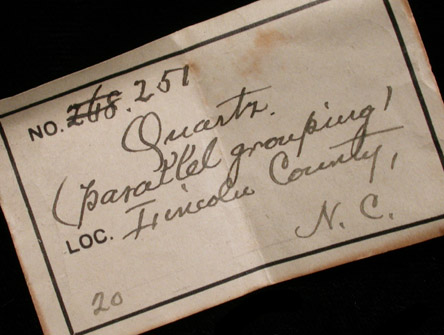 NO. 268. 251
Quartz.
(parallel grouping)
LOC. Lincoln County,
N. C.
20